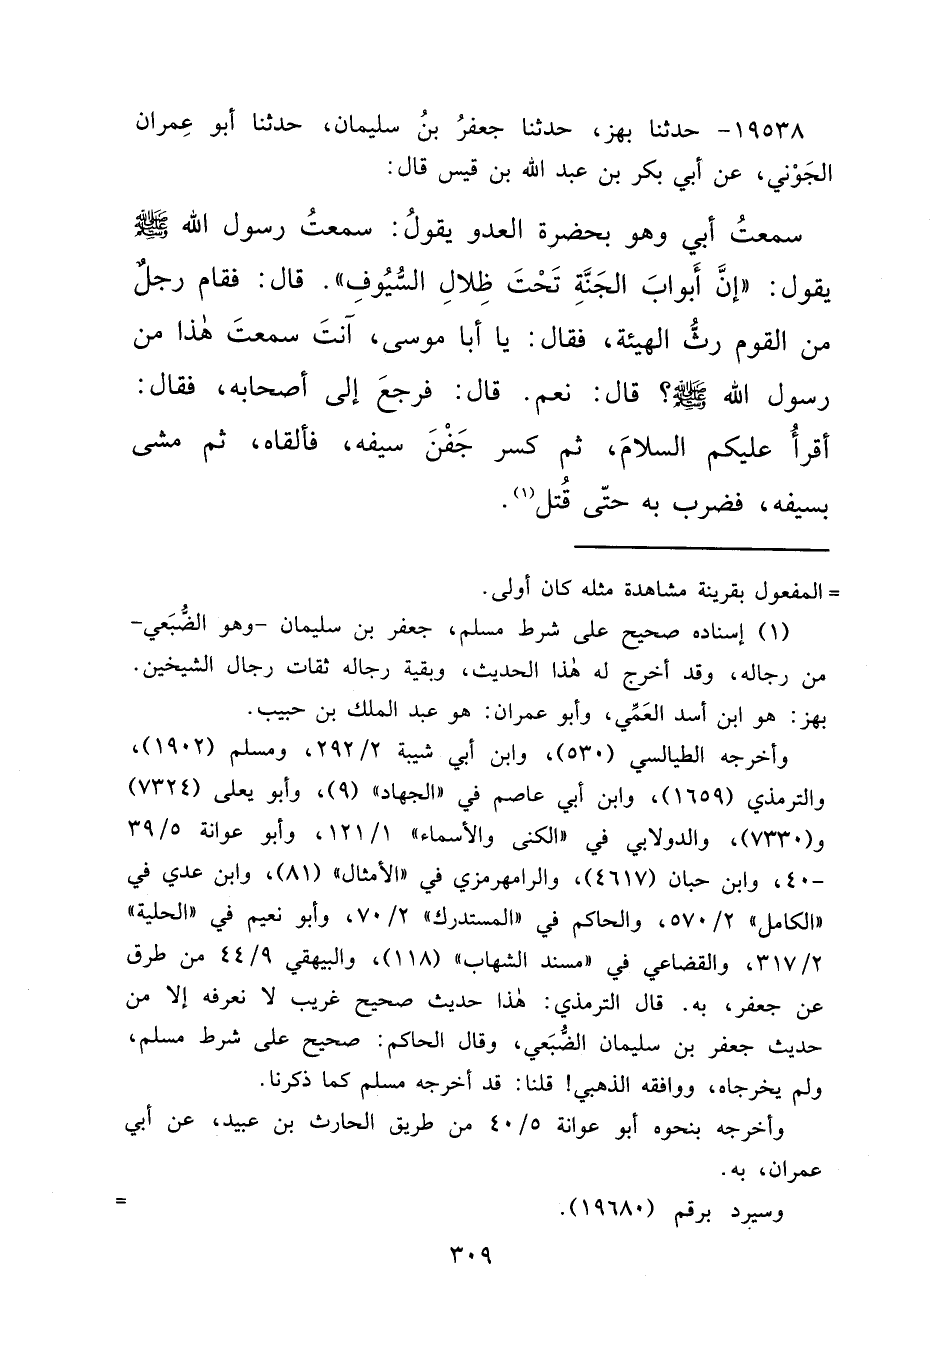 ١٩٥٣٨- حدثنا بهز، حدثنا جعفرُ بنُ سليمان، حدثنا أبو عِمران
الجَوْني، عن أبي بكر بن عبد الله بن قيس قال:
سمعتُ أبي وهو بحضرة العدو يقولُ: سمعتُ رسول الله ﷺ
يقول: «إنَّ أَبوابَ الجَنَّةِ تَحْتَ ظِلالِ السُّيُوفِ». قال: فقام رجلٌ
من القوم رثُّ الهيئة، فقال: يا أبا موسى، آنتَ سمعتَ هٰذا من
رسول الله ﷺ؟ قال: نعم. قال: فرجعَ إلى أصحابه، فقال:
أقرأُ عليكم السلامَ، ثم كسر جَفْنَ سيفه، فألقاه، ثم مشى
بسيفه، فضرب به حتّى قُتل(١).
= المفعول بقرينة مشاهدة مثله كان أولى.
(١) إسناده صحيح على شرط مسلم، جعفر بن سليمان -وهو الضُّبَعي-
من رجاله، وقد أخرج له هٰذا الحديث، وبقية رجاله ثقات رجال الشيخين.
بهز: هو ابن أسد العَمِّي، وأبو عمران: هو عبد الملك بن حبيب.
وأخرجه الطيالسي (٥٣٠)، وابن أبي شيبة ٢٩٢/٢، ومسلم (١٩٠٢)،
والترمذي (١٦٥٩)، وابن أبي عاصم في «الجهاد» (٩)، وأبو يعلى (٧٣٢٤)
و(٧٣٣٠)، والدولابي في «الكنى والأسماء» ١٢١/١، وأبو عوانة ٣٩/٥
-٤٠، وابن حبان (٤٦١٧)، والرامهرمزي في «الأمثال» (٨١)، وابن عدي في
«الكامل» ٥٧٠/٢، والحاكم في «المستدرك» ٧٠/٢، وأبو نعيم في «الحلية»
٣١٧/٢، والقضاعي في «مسند الشهاب» (١١٨)، والبيهقي ٤٤/٩ من طرق
عن جعفر، به. قال الترمذي: هٰذا حديث صحيح غريب لا نعرفه إلا من
حديث جعفر بن سليمان الضُّبَعي، وقال الحاكم: صحيح على شرط مسلم،
ولم يخرجاه، ووافقه الذهبي! قلنا: قد أخرجه مسلم كما ذكرنا.
وأخرجه بنحوه أبو عوانة ٤٠/٥ من طريق الحارث بن عبيد، عن أبي
عمران، به.
وسيرد برقم (١٩٦٨٠). =
٣٠٩